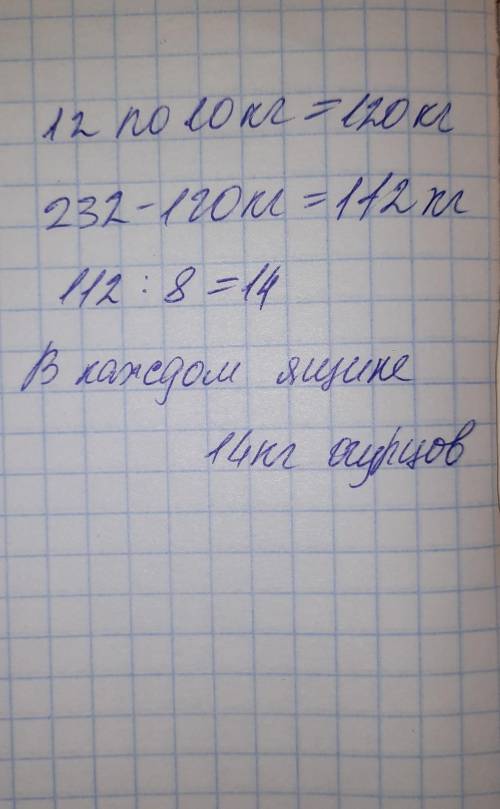 12 по 10 кг = 120 кг
232 - 120 кг = 112 кг
112 : 8 = 14
В каждом ящике
14 кг огурцов